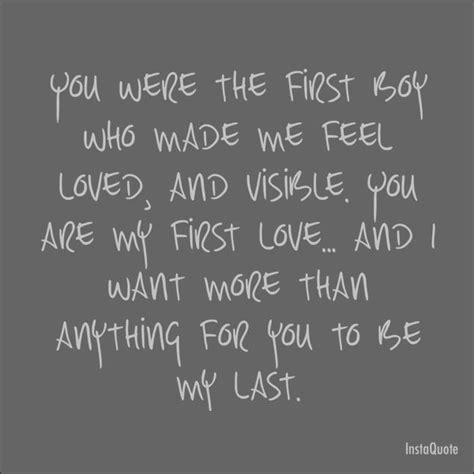 YOU WERE THE FIRST BOY
WHO MADE ME FEEL
LOVED, AND VISIBLE. YOU
ARE MY FIRST LOVE... AND I
WANT MORE THAN
ANYTHING FOR YOU TO BE
MY LAST.
InstaQuote